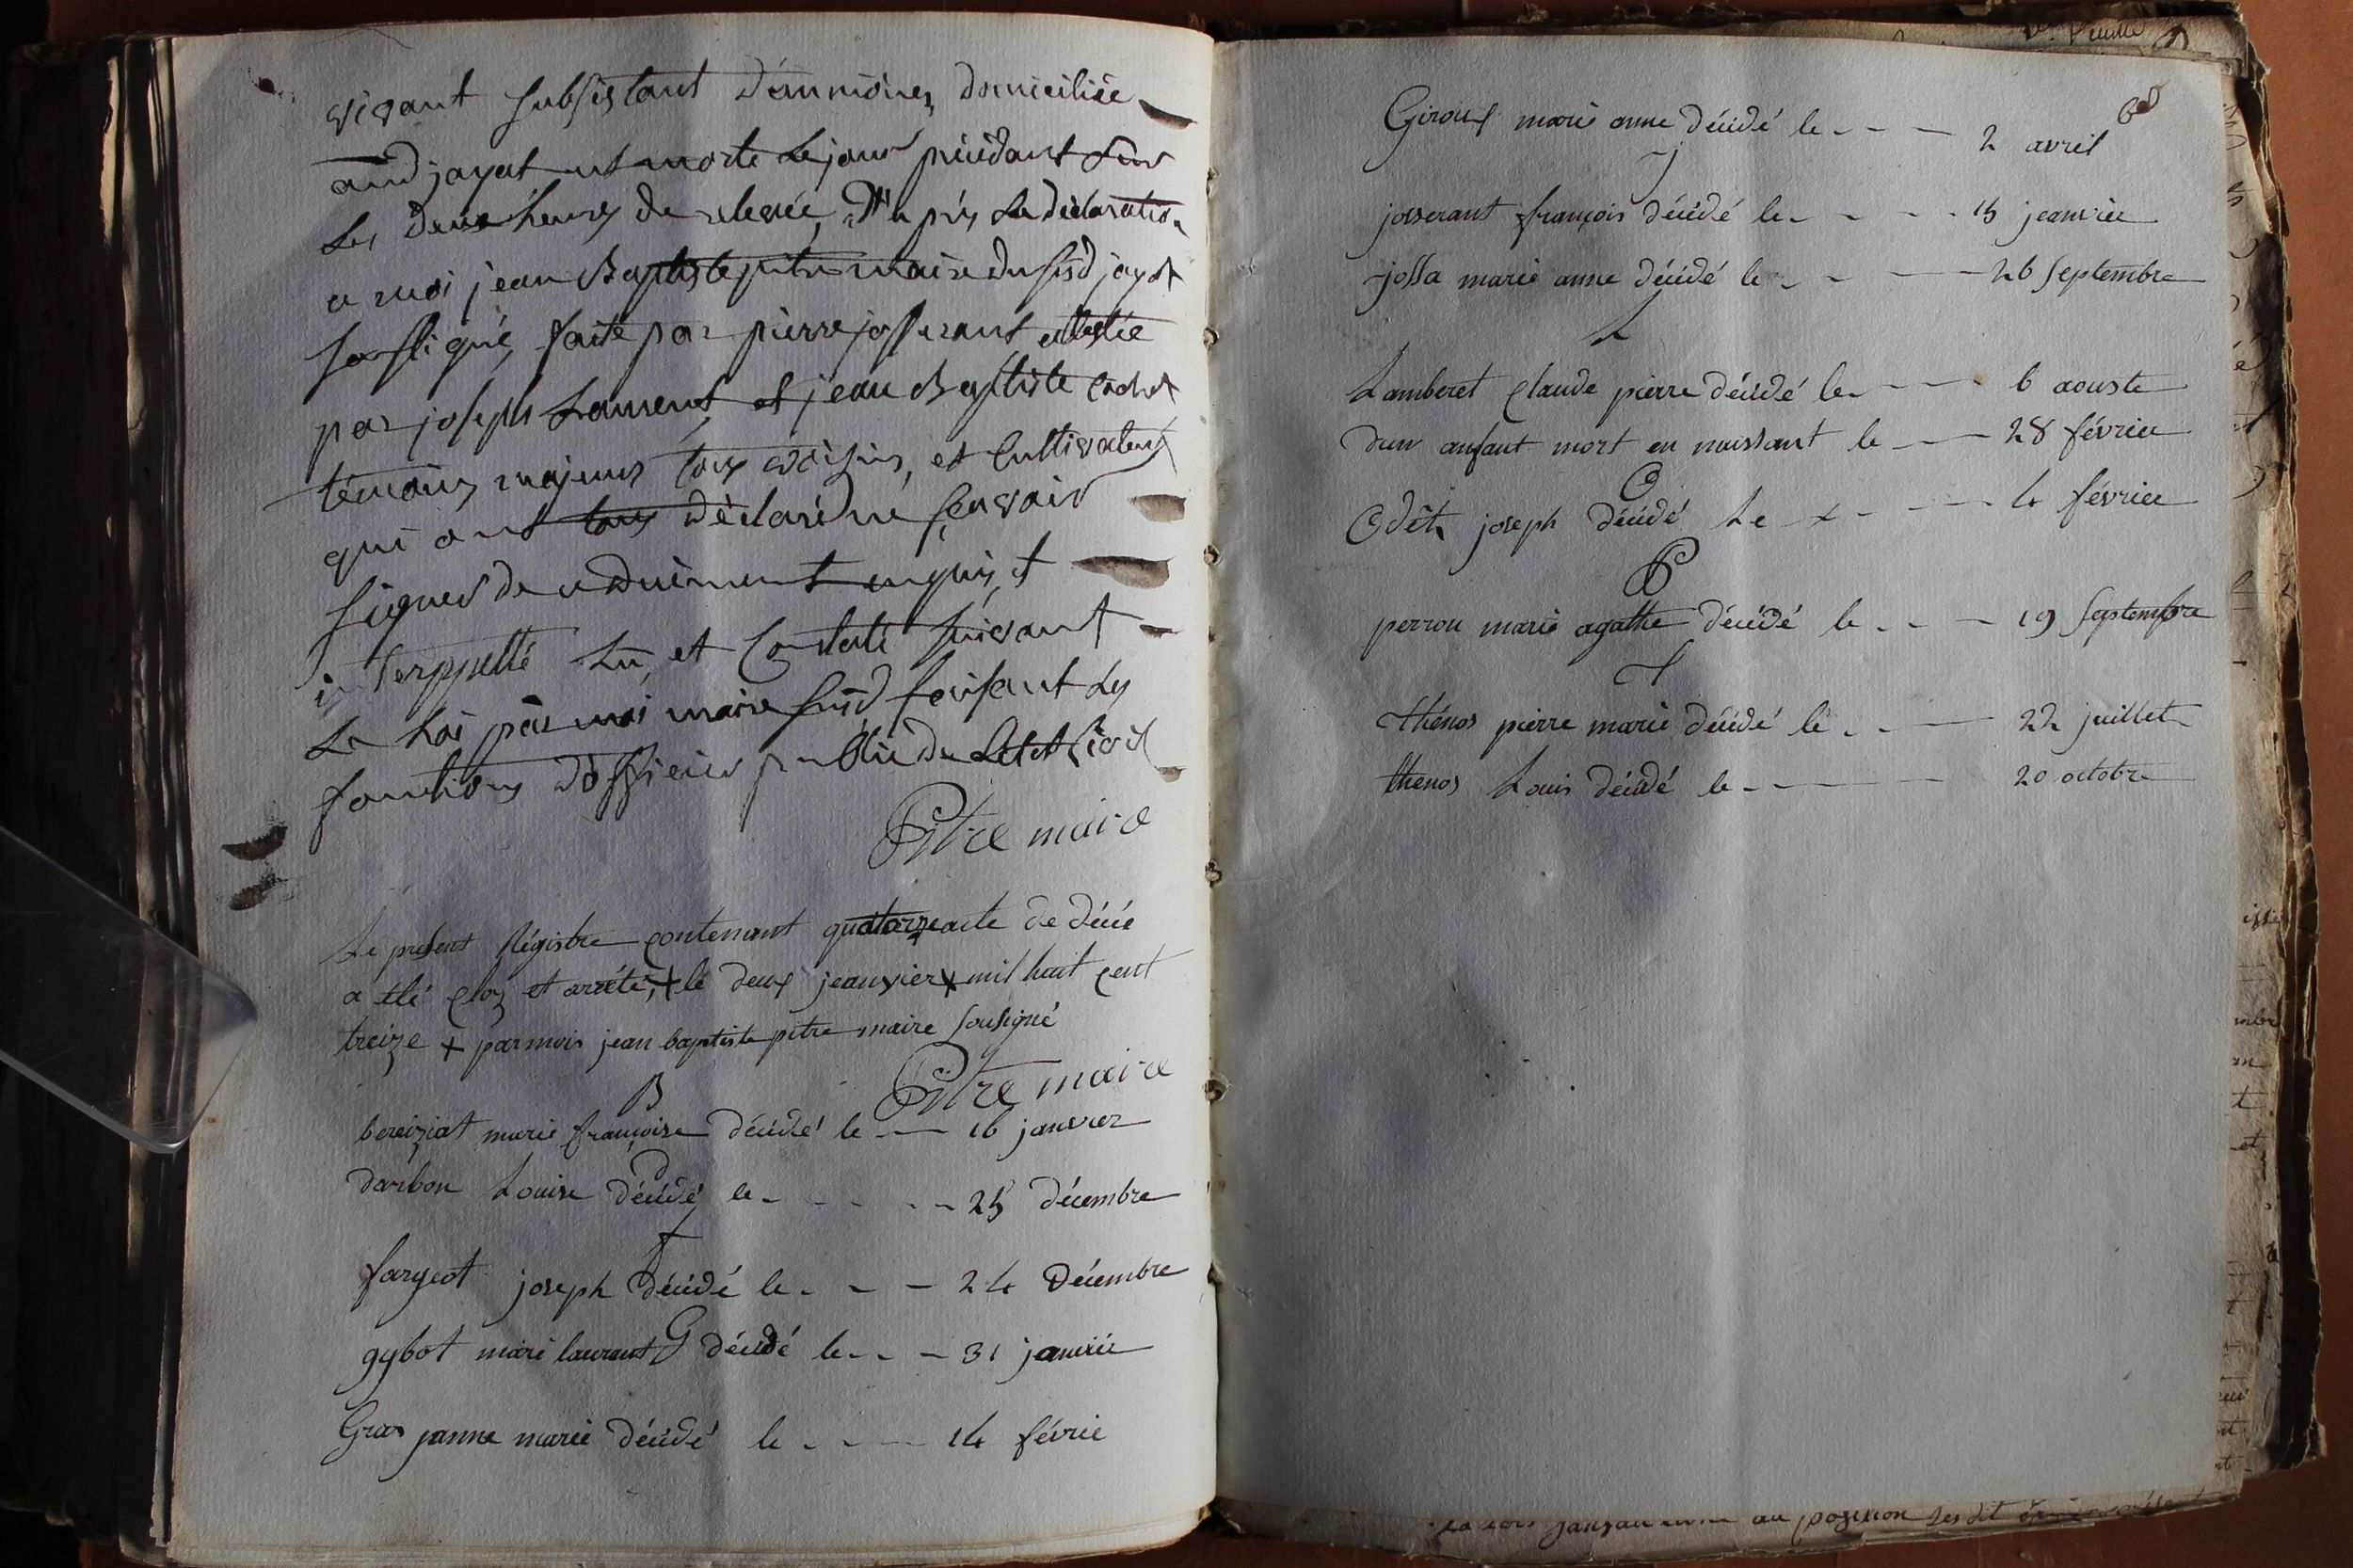 vivant subsistant d'aumônes, domiciliée
aud jayat est morte le jour précédant sur
les deux heures de relevée, D'après la déclaration
a moi jean Baptiste pitre maire du susd jayat
soussigné, faite par pierre josserant attestée
par joseph Laurent, et jean Baptiste
témoins majeurs tous voisins, et Cultivateurs
qui ont tous déclaré ne sçavoir
signer de ce duement enquis, et
interppellé Lu, et Constaté suivant
La Loi par moi maire susd faisant Les
fonctions d'officier public de Letat Civil
Pitre maire
Le present Régistre contenant quatorze acte de décé
a été clos et arrété, + le deux jeanvier + mil huit cent
treize + par mois jean baptiste pitre maire sousigné
Pitre maire
B
bereiziat marie françoise décédé le - - 16 janvier
D
darbon Louise décédé le - - - - - 25 décembre
f
fargeot joseph décédé le - - - 24 Décembre
G
gybot marie laurent décédé le - - - 31 janvié
Gras janne marie décédé le - - - 14 févrie
60
Giroux marie anne décédé le - - - 2 avril
J
josserant françois décédé le - - - - 15 jeanvier
jossa marie anne décédé le - - - 26 Septembre
L
Lamberet Claude pierre décédé le - - - 6 aouste
dun anfant mort en naissant le - - 28 février
O
Odet joseph décédé Le - - - - 4 février
P
perron marie agathe décédé le - - - 19 Septembre
T
thénos pierre marie décédé le - - - 22 juillet
thenos Louis décédé le - - - 20 octobre